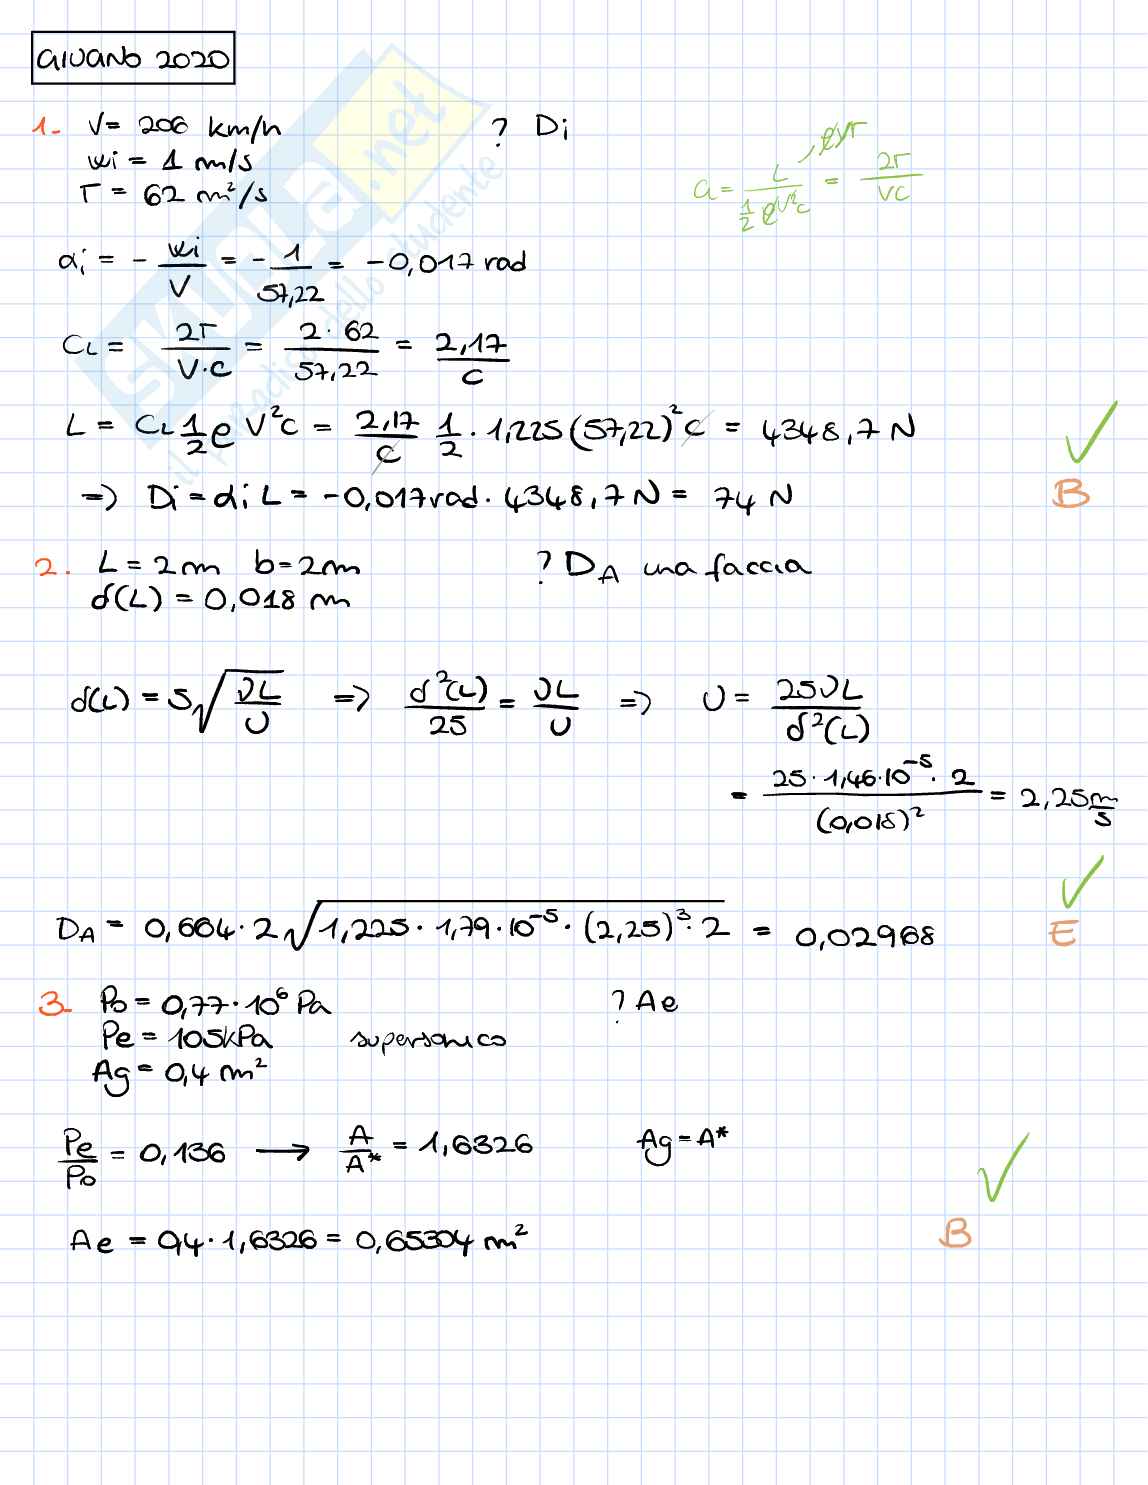 GIUGNO 2020
1- V= 206 km/h ? Di
wi = 1 m/s
Γ = 62 m²/s
CL = L / ½ρV²c = 2Γ / VC , ρVΓ
αi = - wi/V = - 1/57,22 = -0,017 rad
CL = 2Γ/V·C = 2·62/57,22 = 2,17/C
L = CL ½ρ V²C = 2,17/C ½ · 1,225 (57,22)² C = 4348,7 N
=> Di = αi L = -0,017 rad · 4348,7 N = 74 N
B
2. L = 2m b = 2m ? DA una faccia
δ(L) = 0,018 m
δ(L) = 5√(νL/U) => δ²(L)/25 = νL/U => U = 25νL/δ²(L)
= 25·1,46·10⁻⁵·2/(0,018)² = 2,25 m/s
DA = 0,664·2√(1,225·1,79·10⁻⁵·(2,25)³·2) = 0,02968
E
3- Po = 0,77·10⁶ Pa ? Ae
Pe = 105kPa supersonico
Ag = 0,4 m²
Pe/Po = 0,136 → A/A* = 1,6326 Ag = A*
Ae = 0,4·1,6326 = 0,65304 m²
B
SKUOLA.net
il paradiso dello studente